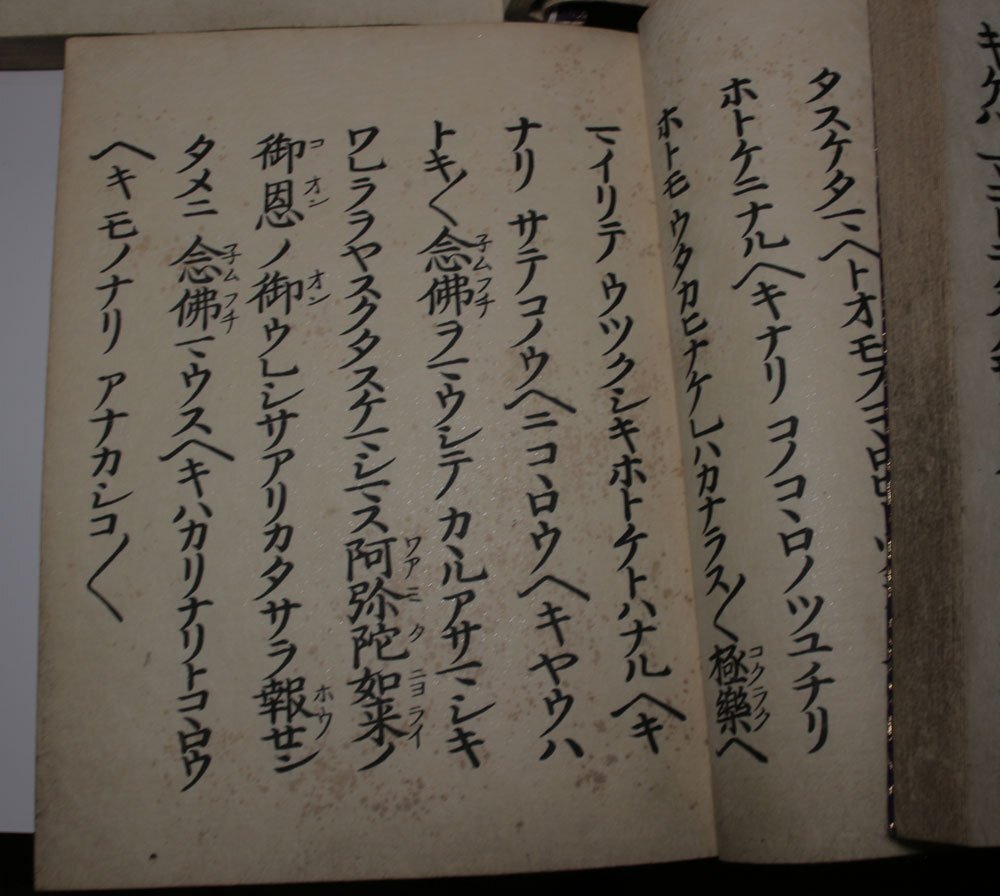 タスケタマヘトオモフコヽロ
ホトケニナルヘキナリ コノコヽロノツユチリ
コクラク
ホトモ ウタカヒナケレハカナラス〳〵極樂ヘ
マイリテ ウツクシキホトケトハナルヘキ
ナリ サテコノウヘニコヽロウヘキヤウハ
子ムフチ
トキ〳〵念佛ヲマウシテ カヽルアサマシキ
ワアミタ ニヨライ
ワレラヲヤスクタスケマシマス阿弥陀如来ノ
コオン オン ホウ
御恩ノ御ウレシサアリカタサヲ報セン
子ムフチ
タメニ 念佛マウスヘキハカリナリトコヽロウ
ヘキモノナリ アナカシコ〳〵